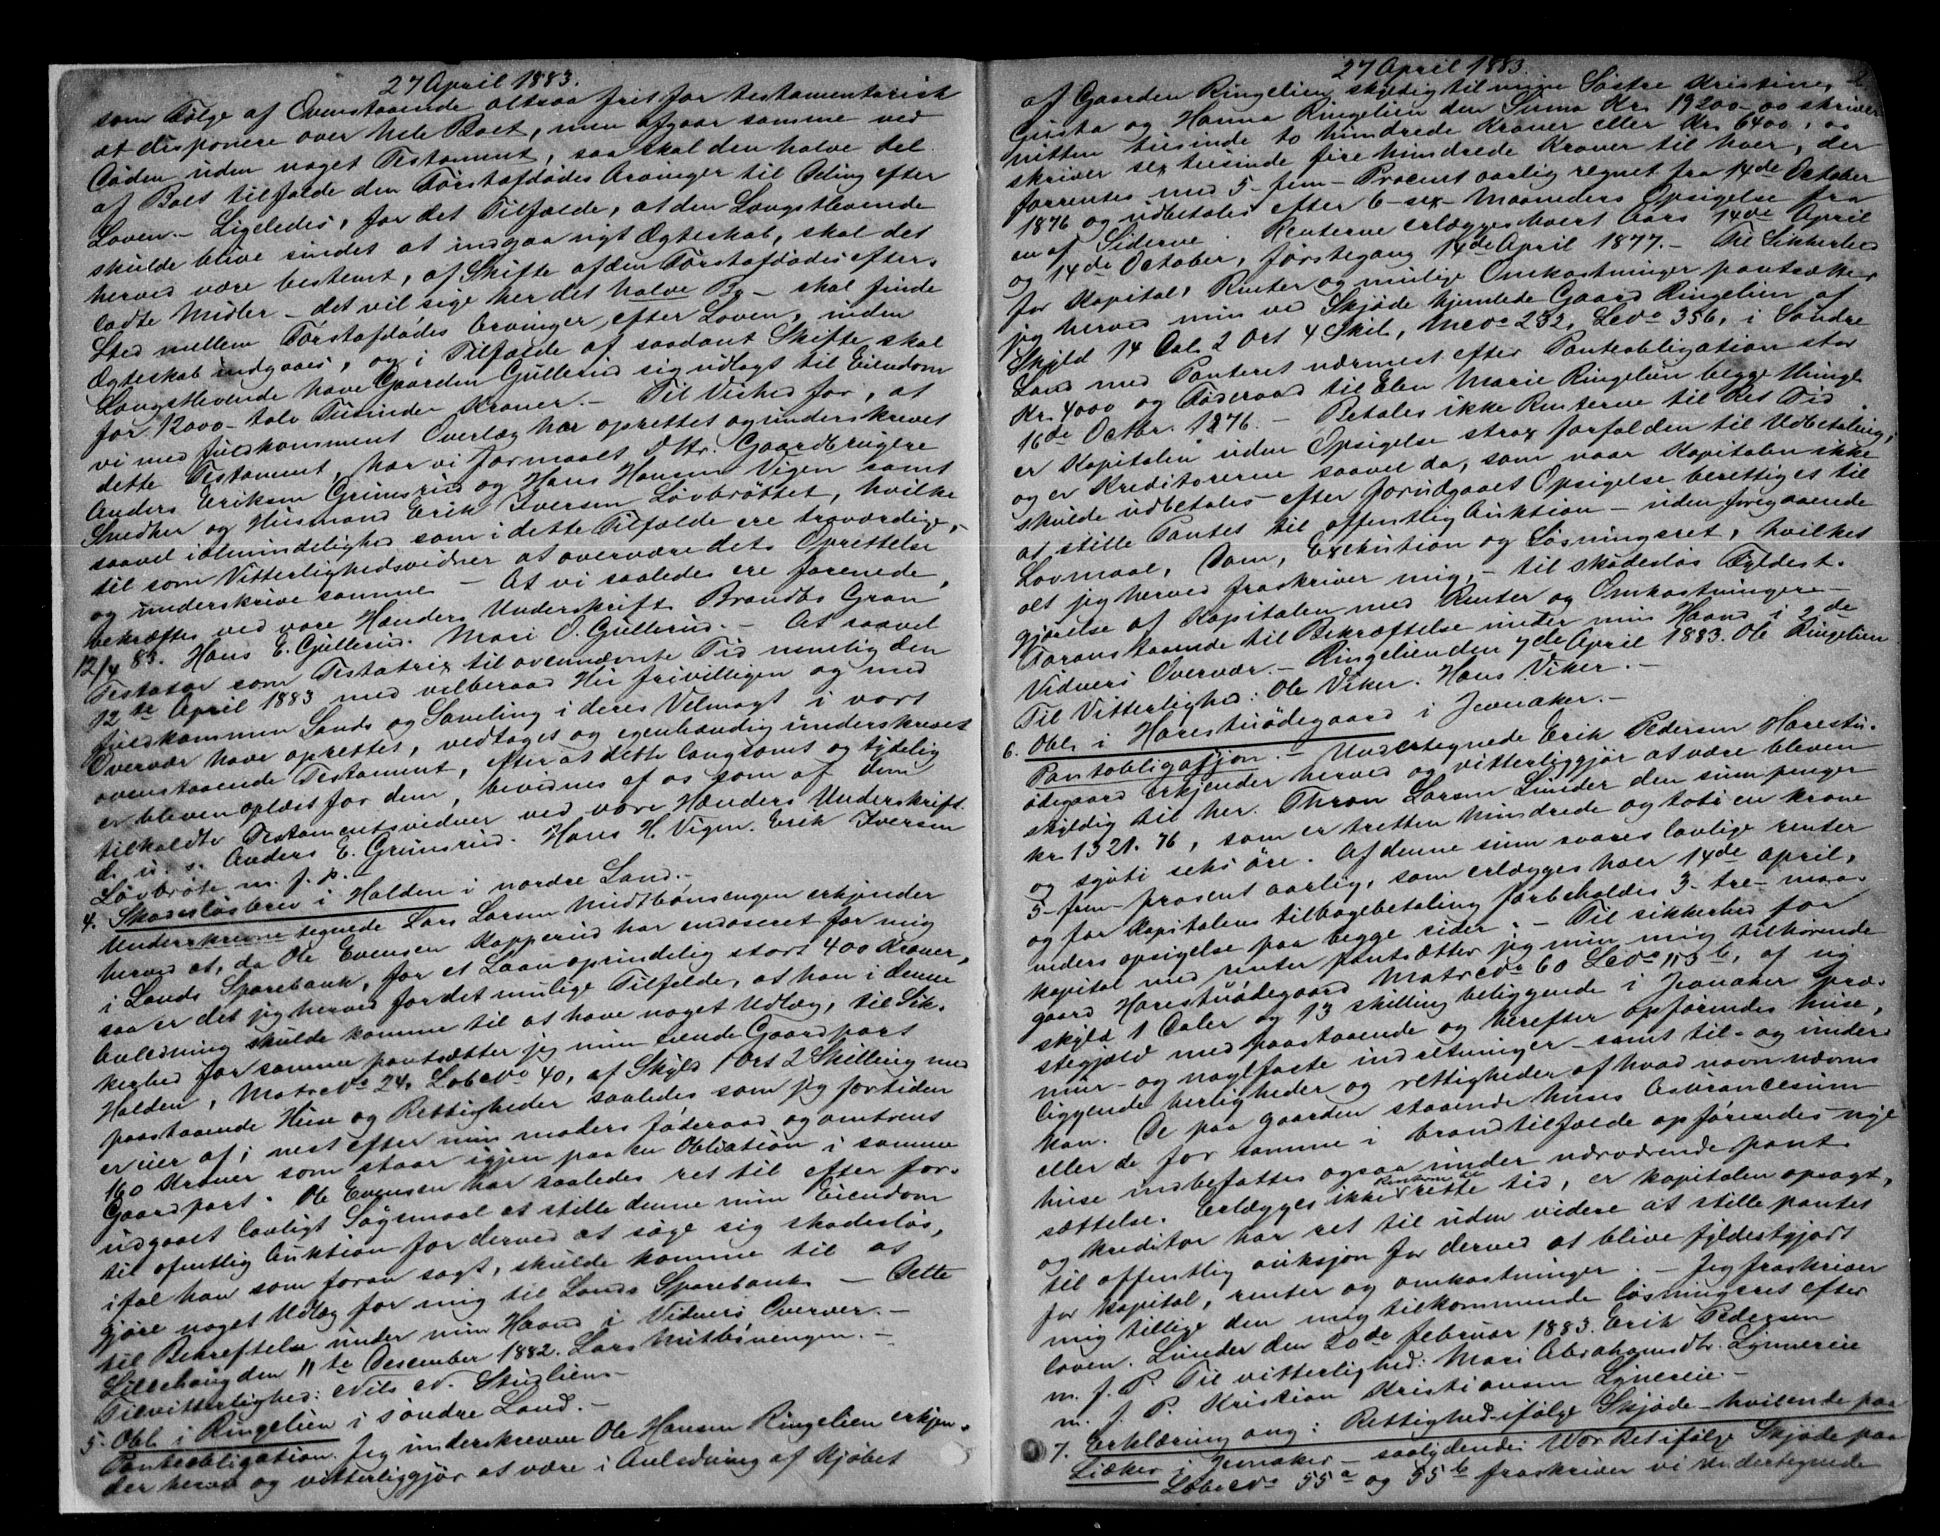 27 April 1883.
som Følge af Ovenstaaende altsaa frit for testamentarisk
at disponere over hele Boet, men afgaar samme ved
Døden uden noget Testament, saa skal den halve del
af Boet tilfalde den Førstafdødes Arvinger til Deling efter
Loven. - Ligeledes, for det Tilfælde, at den Længstlevende
skulde blive sindet at indgaa nyt Ægteskab, skal det
herved være bestemt, at Skifte af den Førstafdødes efter-
ladte Midler - det vil sige her det halve Bo - skal finde
Sted mellem Førstafdødes Arvinger efter Loven, inden
Ægteskab indgaaes, og i Tilfælde af saadant Skifte skal
Længstlevende have Gaarden Gullerud sig udlagt til Eiendom
for 12000 - tolv Tusinde - Kroner. - Til Vished for, at
vi med fuldkomment Overlæg har oprettet og underskrevet
dette Testament, har vi formaaet d'Hr. Gaardbrugere
Anders Eriksen Grimsrud og Hans Hansen Vigen samt
Snedker og Husmand Erik Iversen Løvbrøttet, hvilke
saavel i almindelighed som i dette Tilfælde ere troværdige,
til som Vitterlighedsvidner at overvære dets Oprettelse
og underskrive samme. - At vi saaledes ere forenede,
bekræftes ved vore Hænders Underskrift. Brandbo Gran
12/4 83. Hans E. Gullerud. Mari O. Gullerud. - At saavel
Testator som Testatrix til ovennævnte Tid nemlig den
12te April 1883 med velberaad Hu frivilligen og med
fuldkommen Sands og Samling i deres Velmagt i vort
Overvær have oprettet, vedtaget og egenhændig underskrevet
ovenstaaende Testament, efter at dette langsomt og tydelig
er bleven oplæst for dem, bevidnes af os som af dem
tilkaldte Testamentsvidner ved vore Hænders Underskrift.
d. u. s. Anders E. Grimsrud. Hans H. Vigen. Erik Iversen
Løvbrøte m. f. p. -
4. Skadesløsbrev i Halden i nordre Land. -
Underskrevne tegnede Lars Larsen Midtbønsengen erkjender
herved at, da Ole Evensen Kopperud har endoseret for mig
i Lands Sparebank, for et Laan oprindelig stort 400 Kroner,
saa er det jeg herved for det mulige Tilfælde, at han i denne
Anledning skulde komme til at have noget Udlæg, til Sik-
kerhed for samme pantsætter jeg min eiende Gaardpart
Halden, Matr No 24, Løbe No 40, af Skyld 1 Ort 2 Skilling med
paastaaende Huse og Rettigheder saaledes som jeg for tiden
er eier af, nest efter min moders føderaad og omtrent
160 Kroner som staar igjen paa en Obligation i samme
Gaardpart. Ole Evensen har saaledes ret til efter for-
udgaaet lovligt Søgsmaal at stille denne min Eiendom
til ofentlig Auktion for derved at søge sig skadesløs,
ifal han som foran sagt, skulde komme til at
gjøre noget Udlæg for mig til Lands Sparebank - Dette
til Bekreftelse under min Haand i Vidners Overver. -
Lillehaug den 11te Desember 1882. Lars Mitbønengen. -
Til vitterlighed: Nils N. Skuslien -
5. Obl. i Ringelien i søndre Land. -
Panteobligation. Jeg underskrevne Ole Hansen Ringelien erkjen-
der herved og vitterliggjør at være i Anledning af Kjøbet
27 April 1883. 2.
af Gaarden Ringelien skyldig til mine Søstre Kristine,
Gusta og Hanna Ringelien den Suma Kr. 19200 - og skriver
nitten tusinde to hundrede Kroner eller Kr. 6400, og
skriver sex tusinde fire hundrede Kroner til hver, der
forrentes med 5 - fem - Procent aarlig regnet fra 14de October
1876 og udbetales efter 6 - sex - Maaneders Opsigelse fra
en af Siderne. Renterne erlægges hvert Aars 14de April
og 14de October, førstegang 14de April 1877. - Til Sikkerhed
for Kapital, Renter og mulige Omkostninger pantsætter
jeg herved min ved Skjøde hjemlede Gaard Ringelien af
Skyld 14 Dal. 2 Ort 4 Skil, M No 232, L No 356, i Søndre
Land med Panteret nærmest efter Panteobligation stor
Kr. 4000 og Føderaad til Elen Marie Ringelien begge thingl.
16de Octbr. 1876. - Betales ikke Renterne til Ret Tid
er Kapitalen uden Opsigelse strax forfalden til Udbetaling,
og er Kreditorerne saavel da, som naar Kapitalen ikke
skulde udbetales efter forudgaaet Opsigelse berettiget til
at stille Pantet til offentlig Auktion - uden foregaaende
Lovmaal, Dom, Exekution og Løsningsret, hvilket
alt jeg herved fraskriver mig, - til skadesløs Fyldest-
gjørelse af Kapitalen med Renter og Omkostninger. -
Foranstaaende til Bekræftelse under min Haand i 2de
Vidners Overvær. - Ringelien den 7de April 1883. Ole Ringelien
Til Vitterlighed: Ole Viker. Hans Viker. -
6. Obl. i Harestuødegaard i Jevnaker. -
Pantobligasjon. - Undertegnede Erik Pedersen Harestu-
ødegaard erkjender herved og vitterliggjør at være bleven
skyldig til hr. Thron Larsen Lunder den sum penger
kr. 1321.76, som er tretten hundrede og toti en krone
og sjøti seks øre. Af denne sum svares lovlige renter
5 - fem - prosent aarlig, som erlægges hver 14de april,
og for kapitalens tilbagebetaling forbeholdes 3 - tre - maa-
neders opsigelse paa begge sider. - Til sikkerhed for
kapital med renter pantsætter jeg min mig tilhørende
gaard Harestuødegaard Matr No 60 L No 113 b, af ny
skyld 1 Daler og 13 skilling beliggende i Jevnaker præ-
stegjæld med paastaaende og herefter opførendes huse,
mur- og naglfaste indretninger samt til- og under-
liggende herligheder og rettigheder af hvad navn nævnes
kan. De paa gaarden staaende huses Assurancesum
eller de for samme i brandtilfælde opførendes nye
huse indbefattes ogsaa under nærværende pant-
sættelse. Erlægges ikke Renterne til rette tid, er kapitalen opsagt,
og kreditor har ret til uden videre at stille pantet
til offentlig auksjon for derved at blive fyldestgjort
for kapital, renter og omkostninger. - Jeg fraskriver
mig tillige den mig tilkommende løsningsret efter
loven. Lunder den 20de februar 1883. Erik Pedersen
m. f. P. Til vitterlighed: Mari Abrahamsdtr. Lynnereie
m. f. P. Kristian Kristiansen Lynereie. -
7. Erklæring ang: Rettighed ifølge Skjøde - hvilende paa
Liøker i Jevnaker - saalydende: Vor Ret ifølge Skjøde paa
Løbe No 55 a og 55 b fraskriver vi Undertegnede